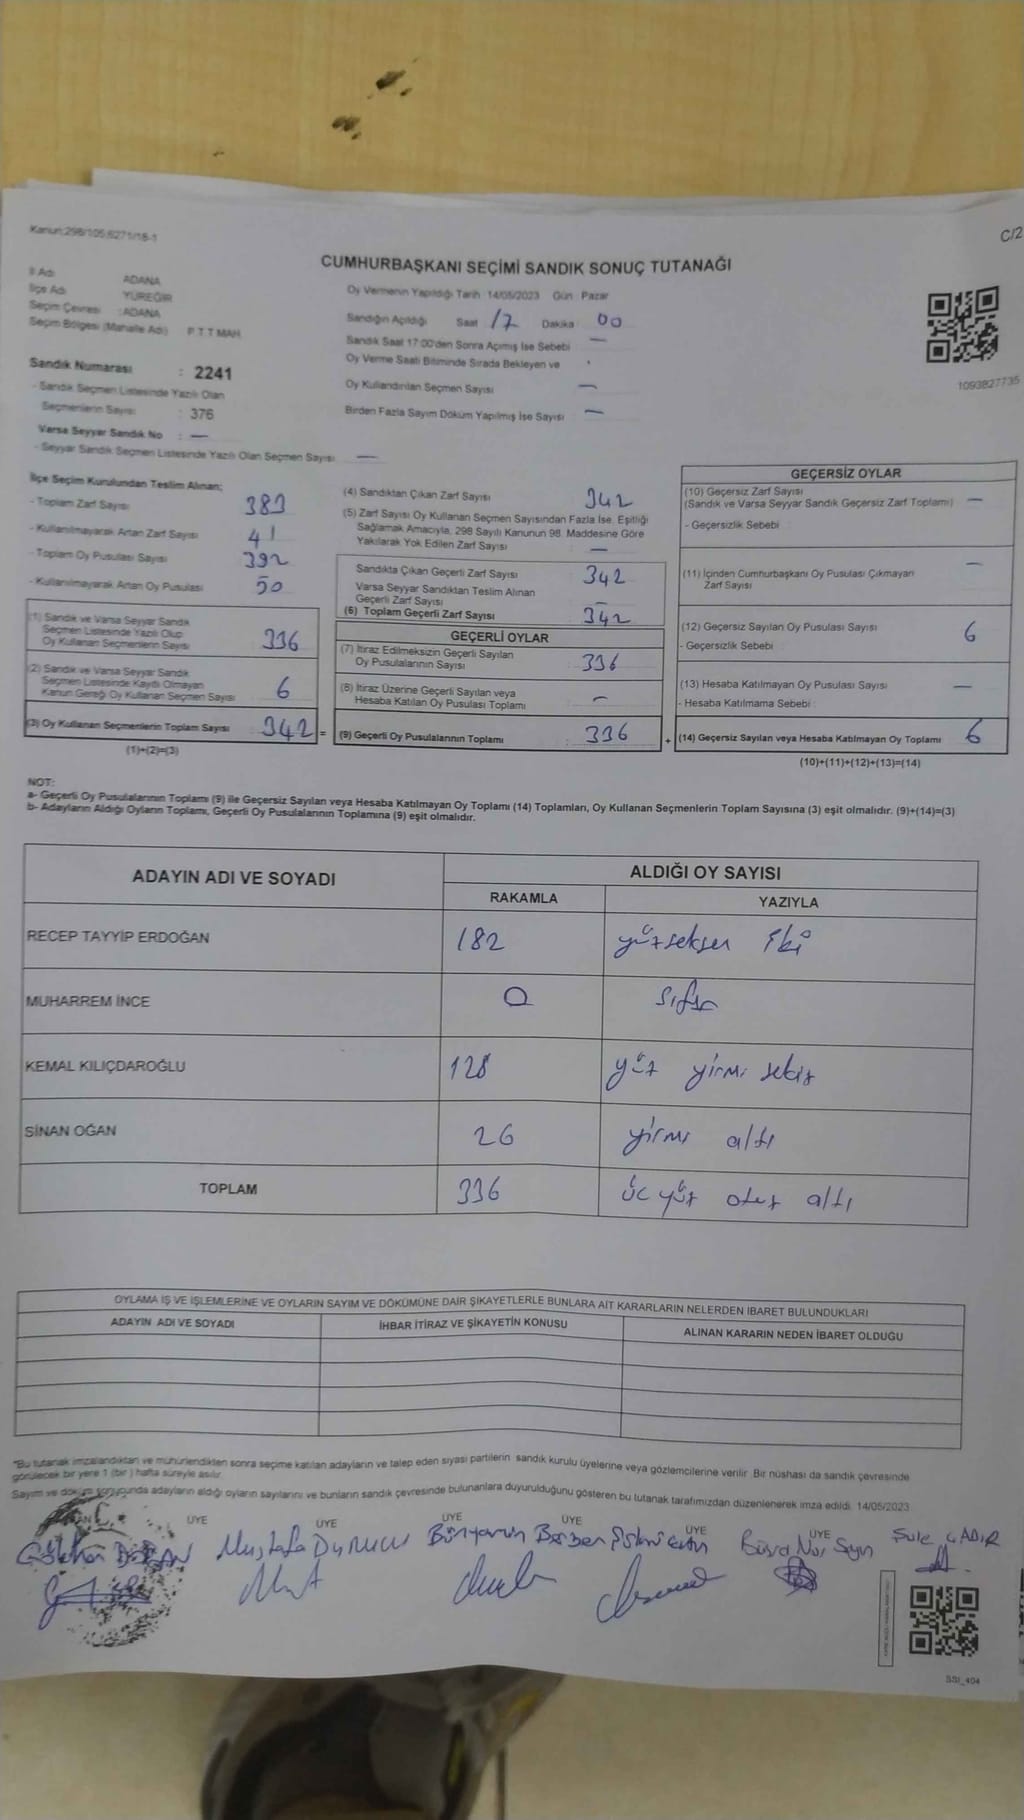 Kanun:298/105,6271/18-1
C/2
CUMHURBAŞKANI SEÇİMİ SANDIK SONUÇ TUTANAĞI
İl Adı ADANA
İlçe Adı YÜREĞİR
Seçim Çevresi : ADANA
Seçim Bölgesi (Mahalle Adı) P.T.T MAH.
Sandık Numarası : 2241
- Sandık Seçmen Listesinde Yazılı Olan
Seçmenlerin Sayısı : 376
Varsa Seyyar Sandık No : —
- Seyyar Sandık Seçmen Listesinde Yazılı Olan Seçmen Sayısı —
Oy Vermenin Yapıldığı Tarih 14/05/2023 Gün Pazar
Sandığın Açıldığı Saat 17 Dakika 00
Sandık Saat 17:00'den Sonra Açımış İse Sebebi —
Oy Verme Saati Bitiminde Sırada Bekleyen ve
Oy Kullandırılan Seçmen Sayısı —
Birden Fazla Sayım Döküm Yapılmış İse Sayısı —
1093827735
İlçe Seçim Kurulundan Teslim Alınan;
- Toplam Zarf Sayısı 383
- Kullanılmayarak Artan Zarf Sayısı 41
- Toplam Oy Pusulası Sayısı 392
- Kullanılmayarak Artan Oy Pusulası 50
(1) Sandık ve Varsa Seyyar Sandık
Seçmen Listesinde Yazılı Olup
Oy Kullanan Seçmenlerin Sayısı 336
(2) Sandık ve Varsa Seyyar Sandık
Seçmen Listesinde Kayıtlı Olmayan
Kanun Gereği Oy Kullanan Seçmen Sayısı 6
(3) Oy Kullanan Seçmenlerin Toplam Sayısı : 342 =
(1)+(2)=(3)
(4) Sandıktan Çıkan Zarf Sayısı 342
(5) Zarf Sayısı Oy Kullanan Seçmen Sayısından Fazla İse, Eşitliği
Sağlamak Amacıyla, 298 Sayılı Kanunun 98. Maddesine Göre
Yakılarak Yok Edilen Zarf Sayısı —
Sandıkta Çıkan Geçerli Zarf Sayısı 342
Varsa Seyyar Sandıktan Teslim Alınan
Geçerli Zarf Sayısı —
(6) Toplam Geçerli Zarf Sayısı 342
GEÇERLİ OYLAR
(7) İtiraz Edilmeksizin Geçerli Sayılan
Oy Pusulalarının Sayısı 336
(8) İtiraz Üzerine Geçerli Sayılan veya
Hesaba Katılan Oy Pusulası Toplamı —
(9) Geçerli Oy Pusulalarının Toplamı : 336 +
GEÇERSİZ OYLAR
(10) Geçersiz Zarf Sayısı
(Sandık ve Varsa Seyyar Sandık Geçersiz Zarf Toplamı) —
- Geçersizlik Sebebi :
(11) İçinden Cumhurbaşkanı Oy Pusulası Çıkmayan
Zarf Sayısı —
(12) Geçersiz Sayılan Oy Pusulası Sayısı 6
- Geçersizlik Sebebi
(13) Hesaba Katılmayan Oy Pusulası Sayısı —
- Hesaba Katılmama Sebebi :
(14) Geçersiz Sayılan veya Hesaba Katılmayan Oy Toplamı 6
(10)+(11)+(12)+(13)=(14)
NOT:
a- Geçerli Oy Pusulalarının Toplamı (9) ile Geçersiz Sayılan veya Hesaba Katılmayan Oy Toplamı (14) Toplamları, Oy Kullanan Seçmenlerin Toplam Sayısına (3) eşit olmalıdır. (9)+(14)=(3)
b- Adayların Aldığı Oyların Toplamı, Geçerli Oy Pusulalarının Toplamına (9) eşit olmalıdır.
ADAYIN ADI VE SOYADI ALDIĞI OY SAYISI
RAKAMLA YAZIYLA
RECEP TAYYİP ERDOĞAN 182 yüzseksen iki
MUHARREM İNCE 0 sıfır
KEMAL KILIÇDAROĞLU 128 yüz yirmi sekiz
SİNAN OĞAN 26 yirmi altı
TOPLAM 336 üç yüz otuz altı
OYLAMA İŞ VE İŞLEMLERİNE VE OYLARIN SAYIM VE DÖKÜMÜNE DAİR ŞİKAYETLERLE BUNLARA AİT KARARLARIN NELERDEN İBARET BULUNDUKLARI
ADAYIN ADI VE SOYADI İHBAR İTİRAZ VE ŞİKAYETİN KONUSU ALINAN KARARIN NEDEN İBARET OLDUĞU
*Bu tutanak imzalandıktan ve mühürlendikten sonra seçime katılan adayların ve talep eden siyasi partilerin sandık kurulu üyelerine veya gözlemcilerine verilir. Bir nüshası da sandık çevresinde
görülecek bir yere 1 (bir ) hafta süreyle asılır.
Sayım ve döküm sonucunda adayların aldığı oyların sayılarını ve bunların sandık çevresinde bulunanlara duyurulduğunu gösteren bu tutanak tarafımızdan düzenlenerek imza edildi. 14/05/2023
ÜYE ÜYE ÜYE ÜYE ÜYE ÜYE
Gökhan DOĞAN Mustafa Durucu Bünyamin Berber Büşra Nur Şule ÇADIR
SSI_404